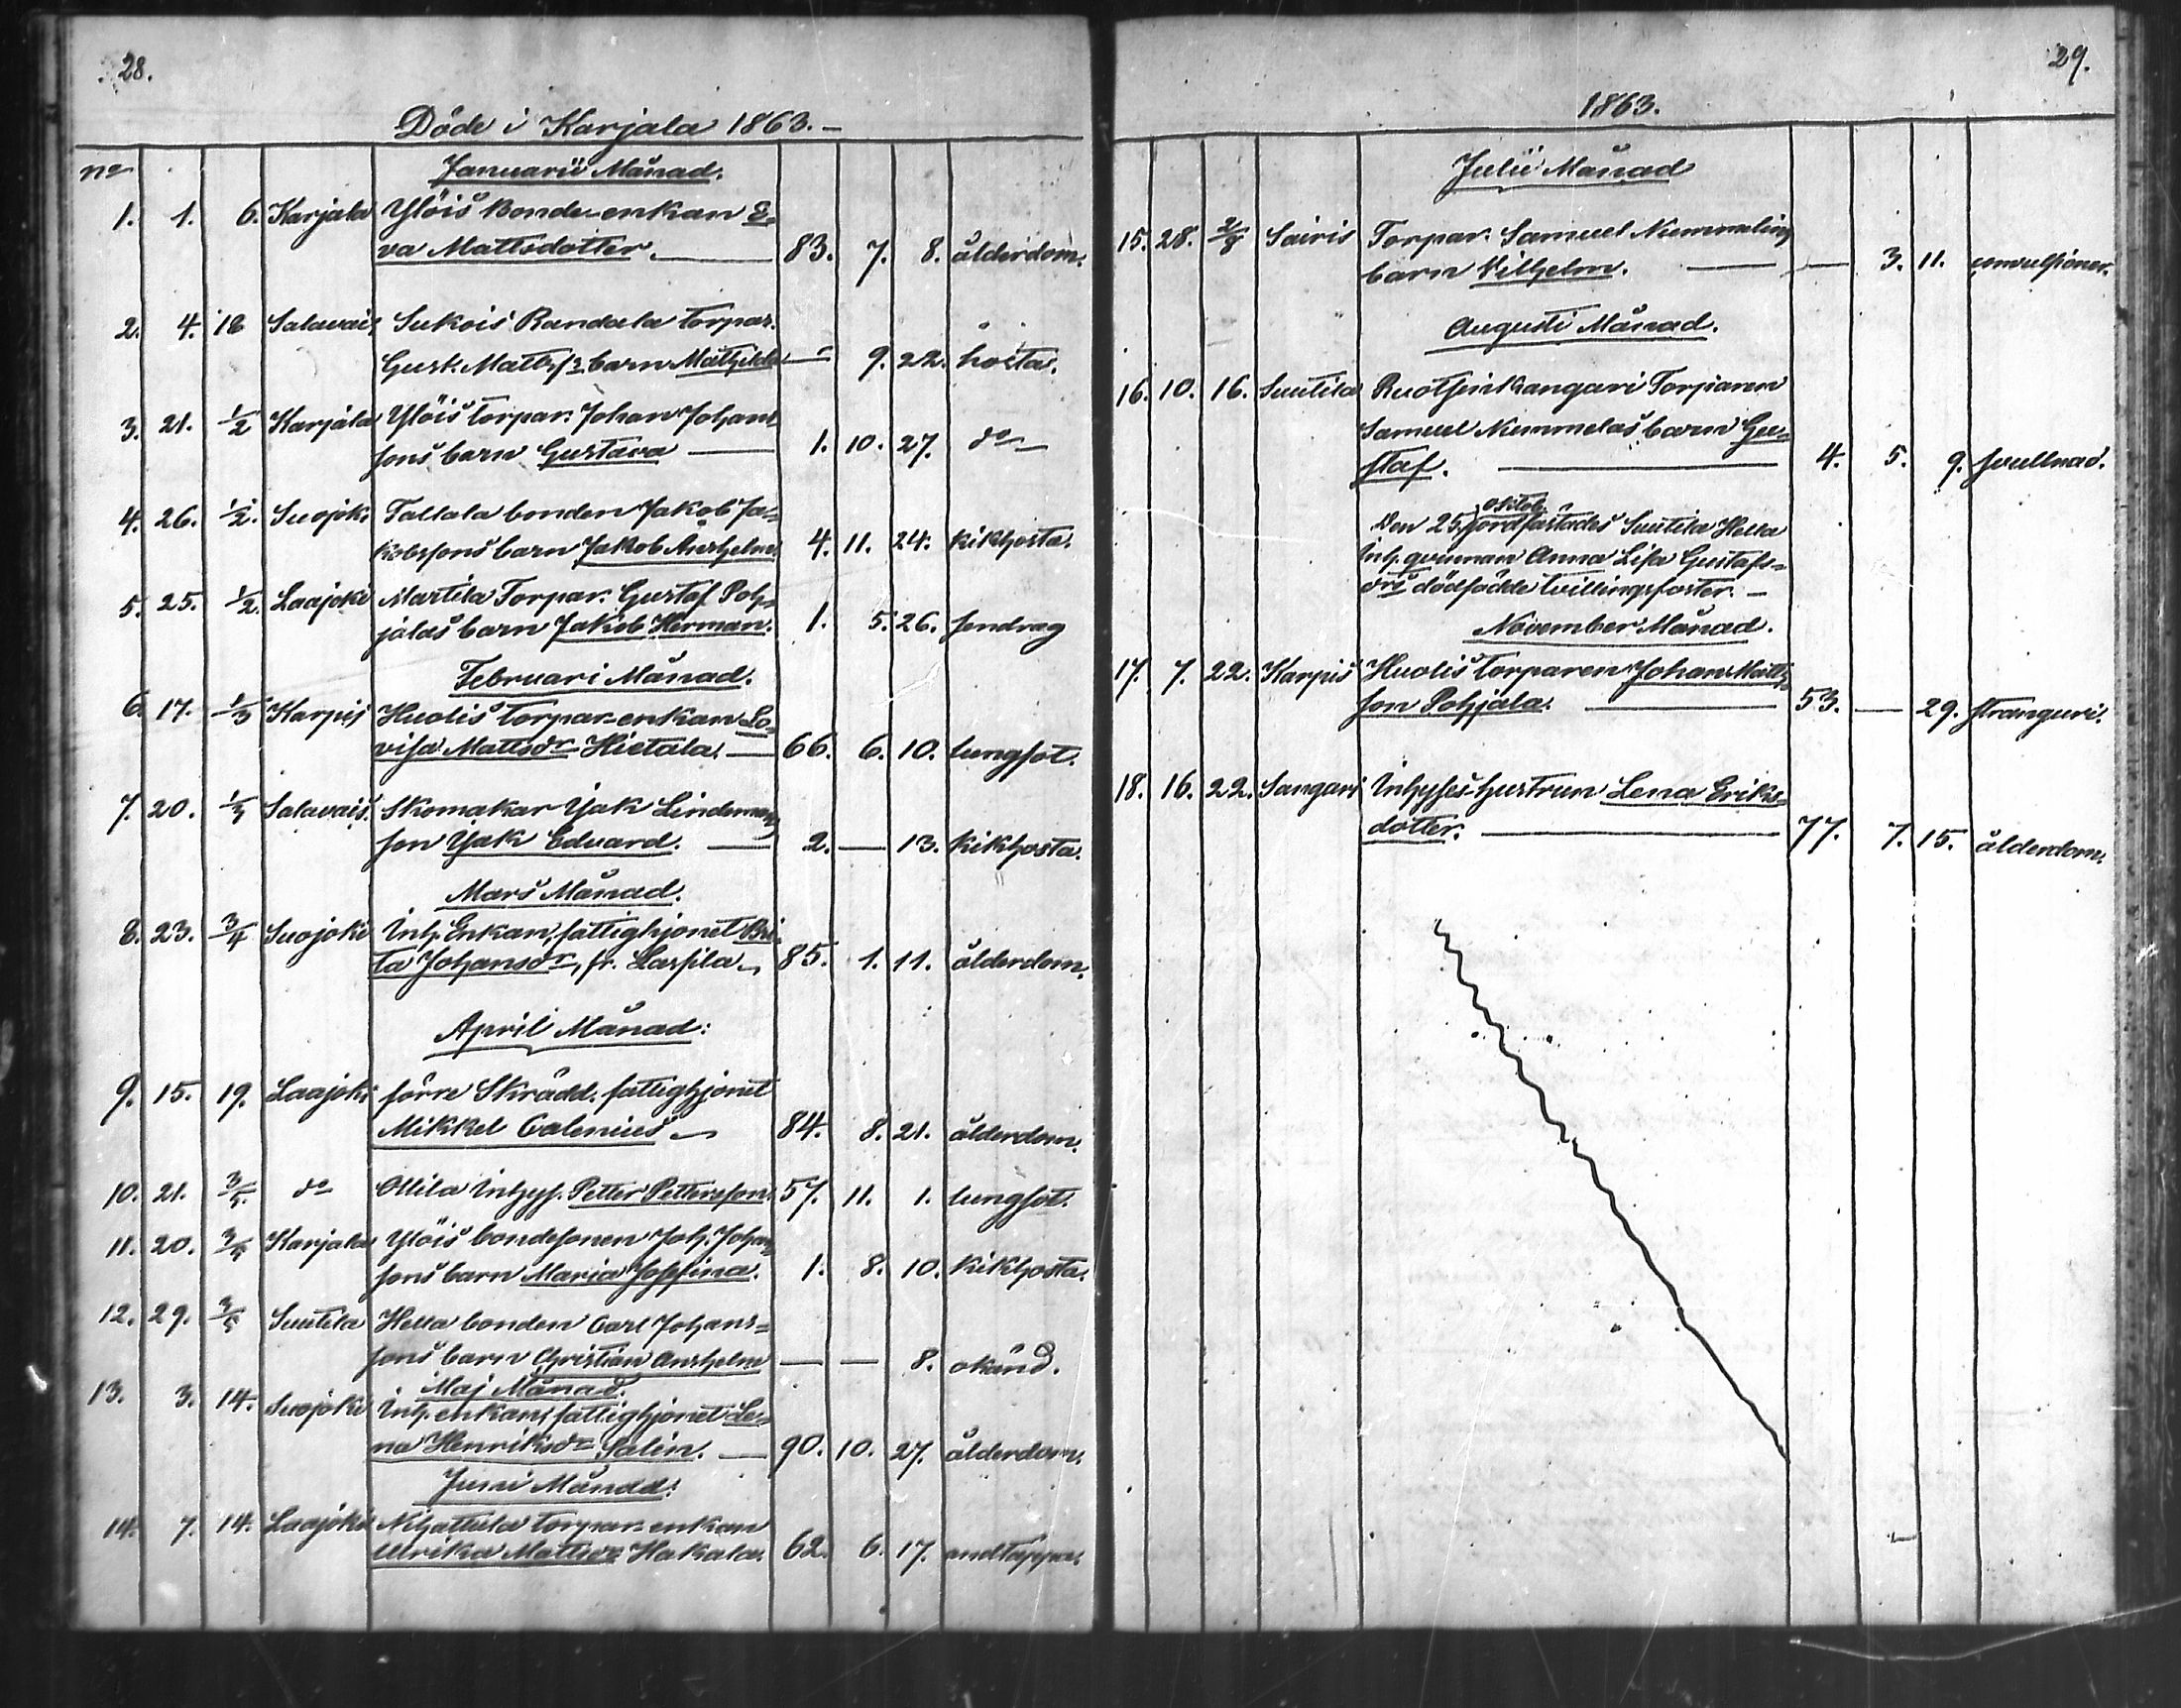 28.
Döde i Karjala 1863.-
no
Januarii Månad.
1. 1. 6. Karjala Ylöis Bonde-enkan E-
va Mattsdotter. 83. 7. 8. ålderdom.
2. 4. 18 Salavais Sukois Randala torpar.
Gust. Matts.s barn Mathilda — 9. 22. hosta.
3. 21. 1/2 Karjala Ylöis torpar. Johan Johans
sons barn Gustava — 1. 10. 27. do
4. 26. 1/2. Suojoki Tallala bonden Jakob Ja-
kobssons barn Jakob Anshelm. 4. 11. 24. kikhosta.
5. 25. 1/2. Laajoki Martila Torpar. Gustaf Poh-
jalas barn Jakob Herman. 1. 5. 26. sendrag
Februari Månad.
6. 17. 1/3 Karpis Huolis torpar-enkan Lo-
visa Mattsdr Hietala. — 66. 6. 10. lungsot.
7. 20. 1/3 Salavais. Skomakar Isak Lindemans
son Isak Eduard. — 2. — 13. kikhosta.
Mars Månad.
8. 23. 3/4 Suojoki Inh. Enkan, fattighjonet Bri-
ta Johansdr, fr. Lassila 85. 1. 11. ålderdom.
April Månad:
9. 15. 19. Laajoki förre Skrädd. fattighjonet
Mikkel Calenius 84. 8. 21. ålderdom.
10. 21. 3/5. do Ollila Inhys. Petter Pettersson. 57. 11. 1. lungsot.
11. 20. 3/5 Karjala Ylöis bondesonen Joh. Johans
sons barn Maria Josefina. 1. 8. 10. kikhosta.
12. 29. 3/5 Suutila Hella bonden Carl Johans-
sons barn Christian Anshelm — — 8. okänd.
Maj Månad.
13. 3. 14. Suojoki Inh. enkan, fattighjonet Le-
na Henriksdr Salin. — 90. 10. 27. ålderdom.
Juni Månad:
14. 7. 14. Laajoki Nihattula torpar-enkan
Ulrika Mattsdr Hakala. 62. 6. 17. andtäppa.
29.
1863.
Julii Månad
15. 28. 2/8 Sairis Torpar. Samuel Nummelins
barn Vilhelm. — — 3. 11. convulsioner.
Augusti Månad.
16. 10. 16. Suutila Ruotsinkangari Torparen
Samuel Nummelas barn Gu-
staf. — 4. 5. 9. svullnad.
Oktob.
Den 25. jordfästades Suutila Hella
Inh. qvinnan Anna Lisa Gustafs-
drs dödfödde tvillingsfoster. —
November Månad.
17. 7. 22. Karpis Huolis torparen Johan Matts-
son Pohjala. — 53. — 29. stranguri.
18. 16. 22. Sangari Inhyses-hustrun Lena Eriks-
dotter. — 77. 7. 15. ålderdom.